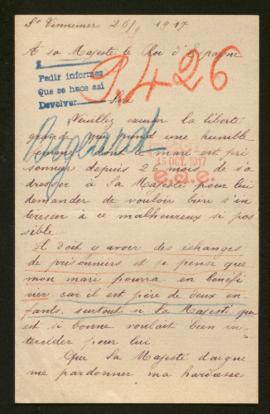 St 26/9 1917
A sa Majesté le Roi d'Espagne
2
Pedir informes
Que se hace así
Devolver
9426
Sire
Veuillez excuser la liberté
que prend une humble
femme dont le mari est pri
sonnier depuis 2 mois de sa
dresser à Sa Majesté pour lui
demander de vouloir bien s'in
téresser à ce malheureux si pos
sible.
15 OCT. 1917
Il doit y avoir des échanges
de prisonniers et je pense que
mon mari pourra en bénéfi
cier car il est père de deux en
fants, surtout si Sa Majesté qui
est si bonne voulait bien in
tercéder pour lui
Que Sa Majesté daigne
me pardonner ma hardiesse